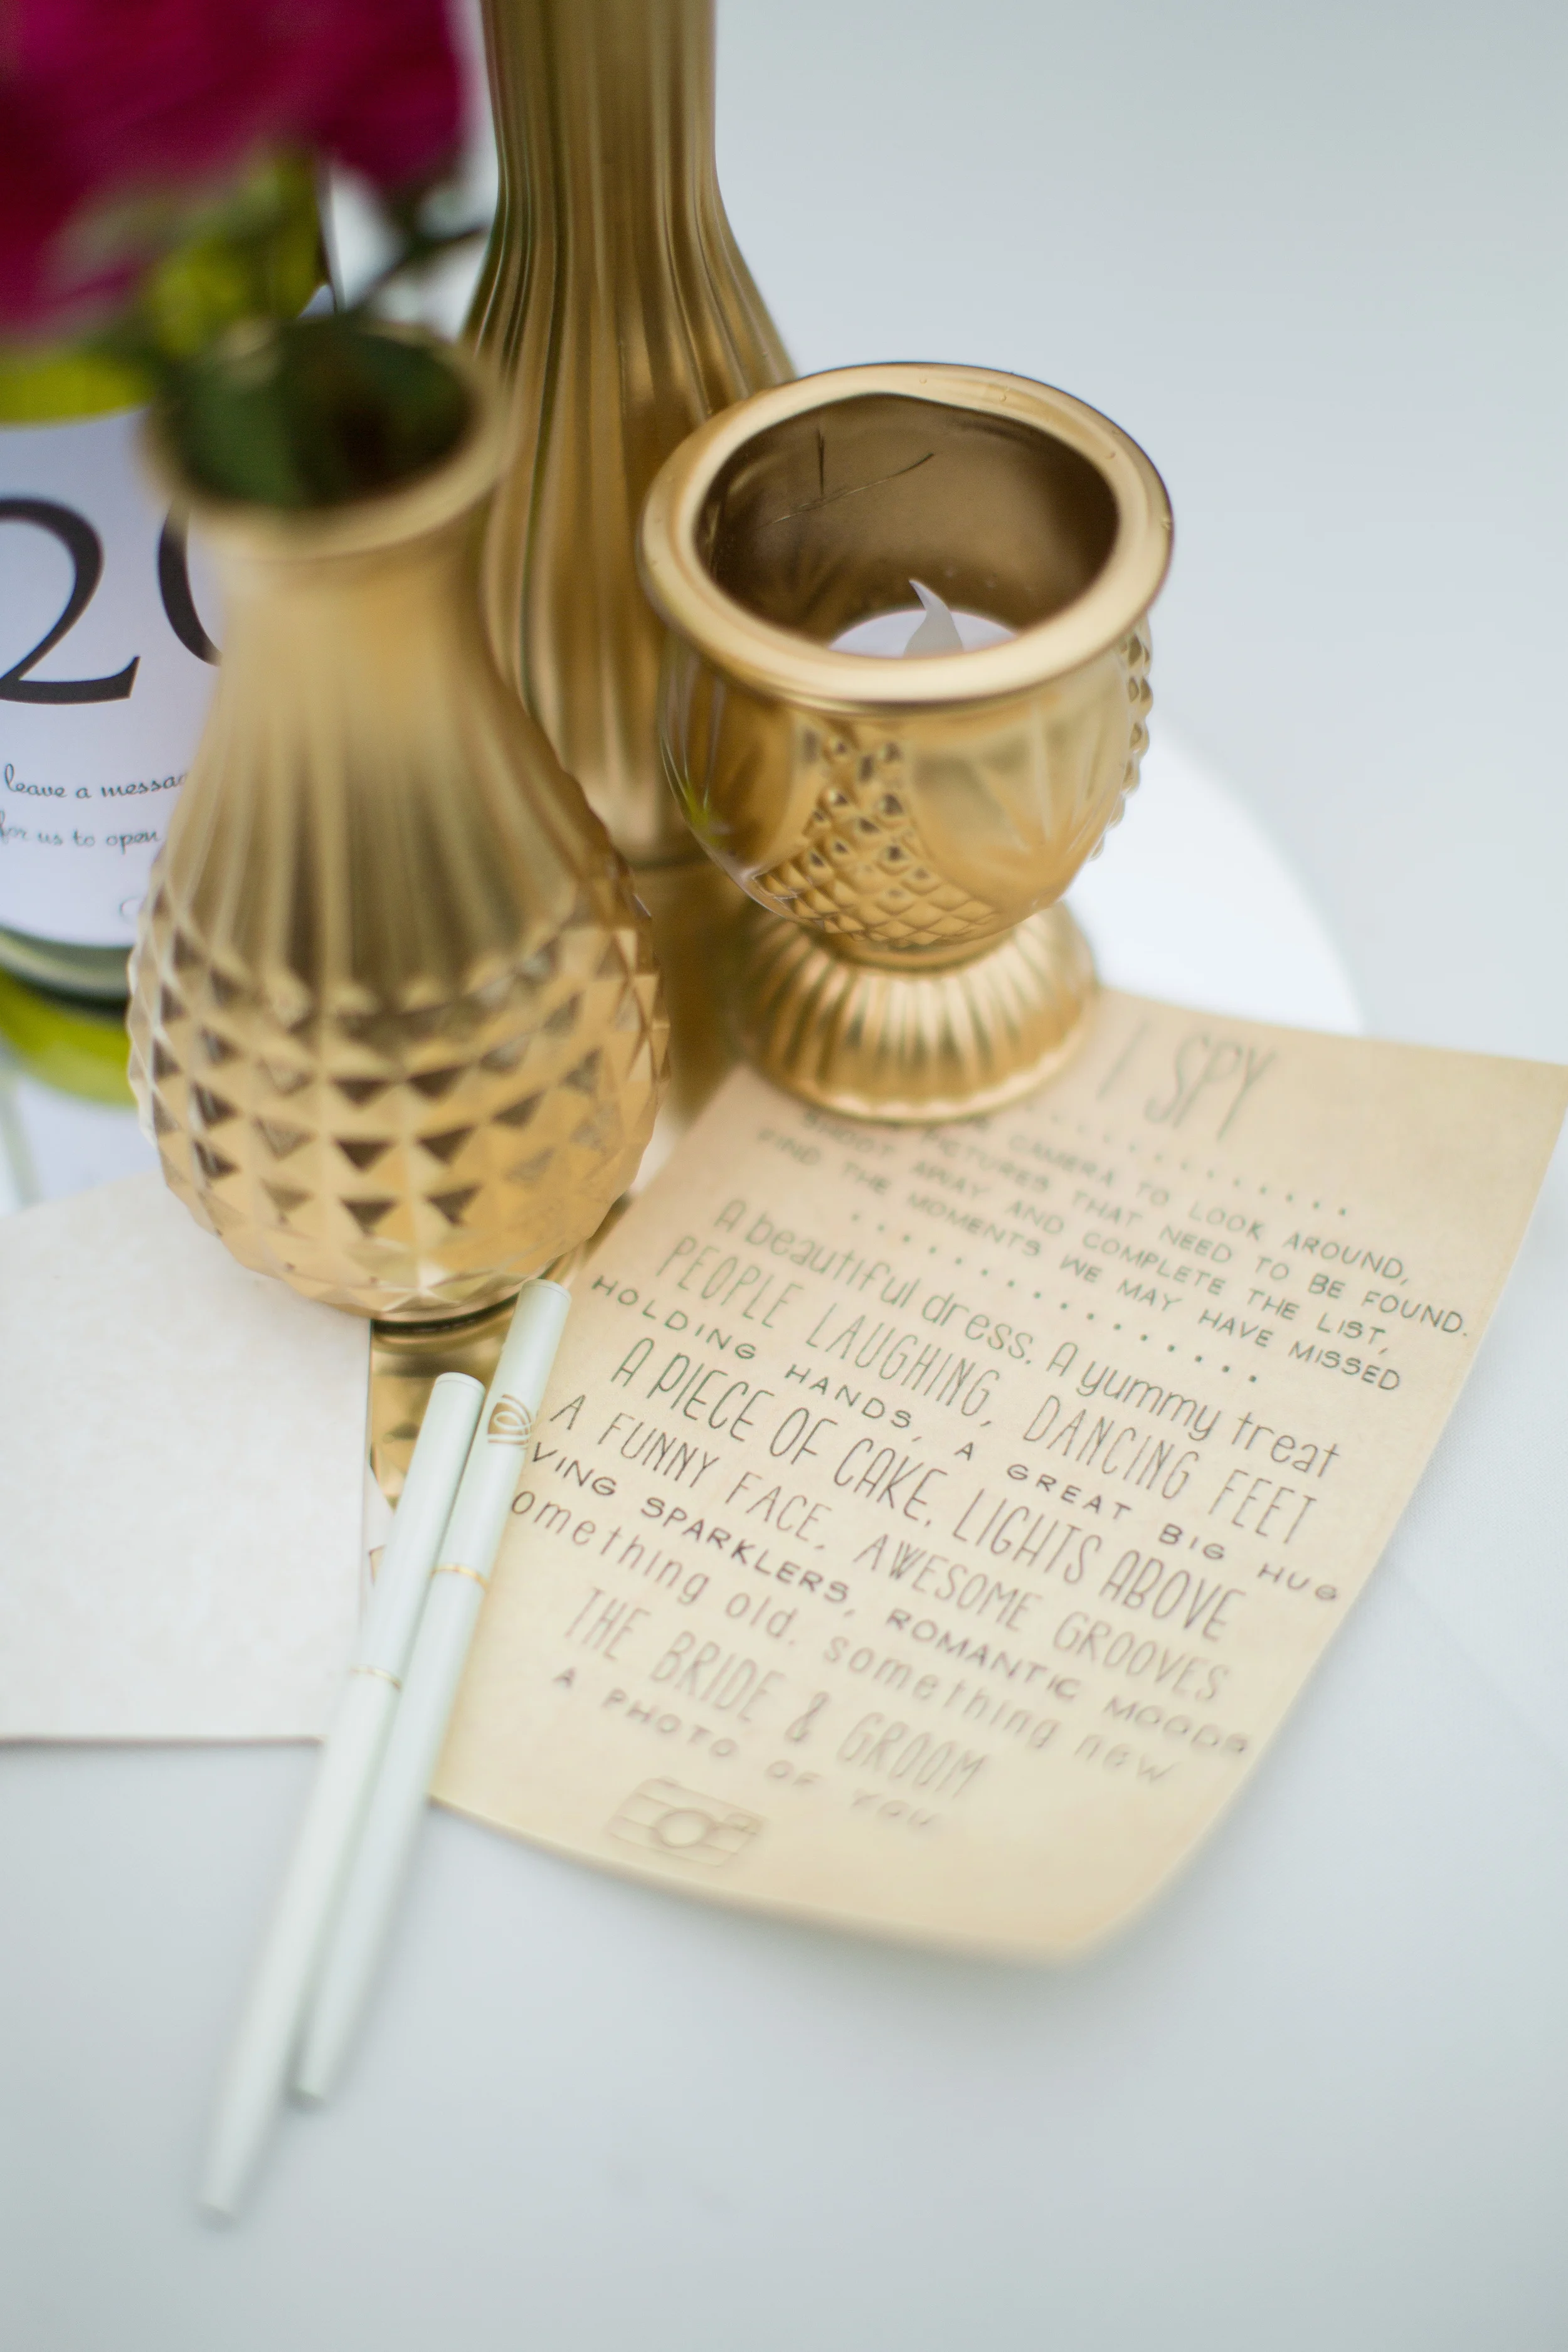 20
leave a messag
for us to open
I SPY
CAMERA TO LOOK AROUND,
PICTURES THAT NEED TO BE FOUND.
SHOOT AWAY AND COMPLETE THE LIST,
FIND THE MOMENTS WE MAY HAVE MISSED
A beautiful dress. A yummy treat
PEOPLE LAUGHING, DANCING FEET
HOLDING HANDS, A GREAT BIG HUG
A PIECE OF CAKE. LIGHTS ABOVE
A FUNNY FACE, AWESOME GROOVES
VING SPARKLERS, ROMANTIC MOODS
omething old. something new
THE BRIDE & GROOM
A PHOTO OF YOU